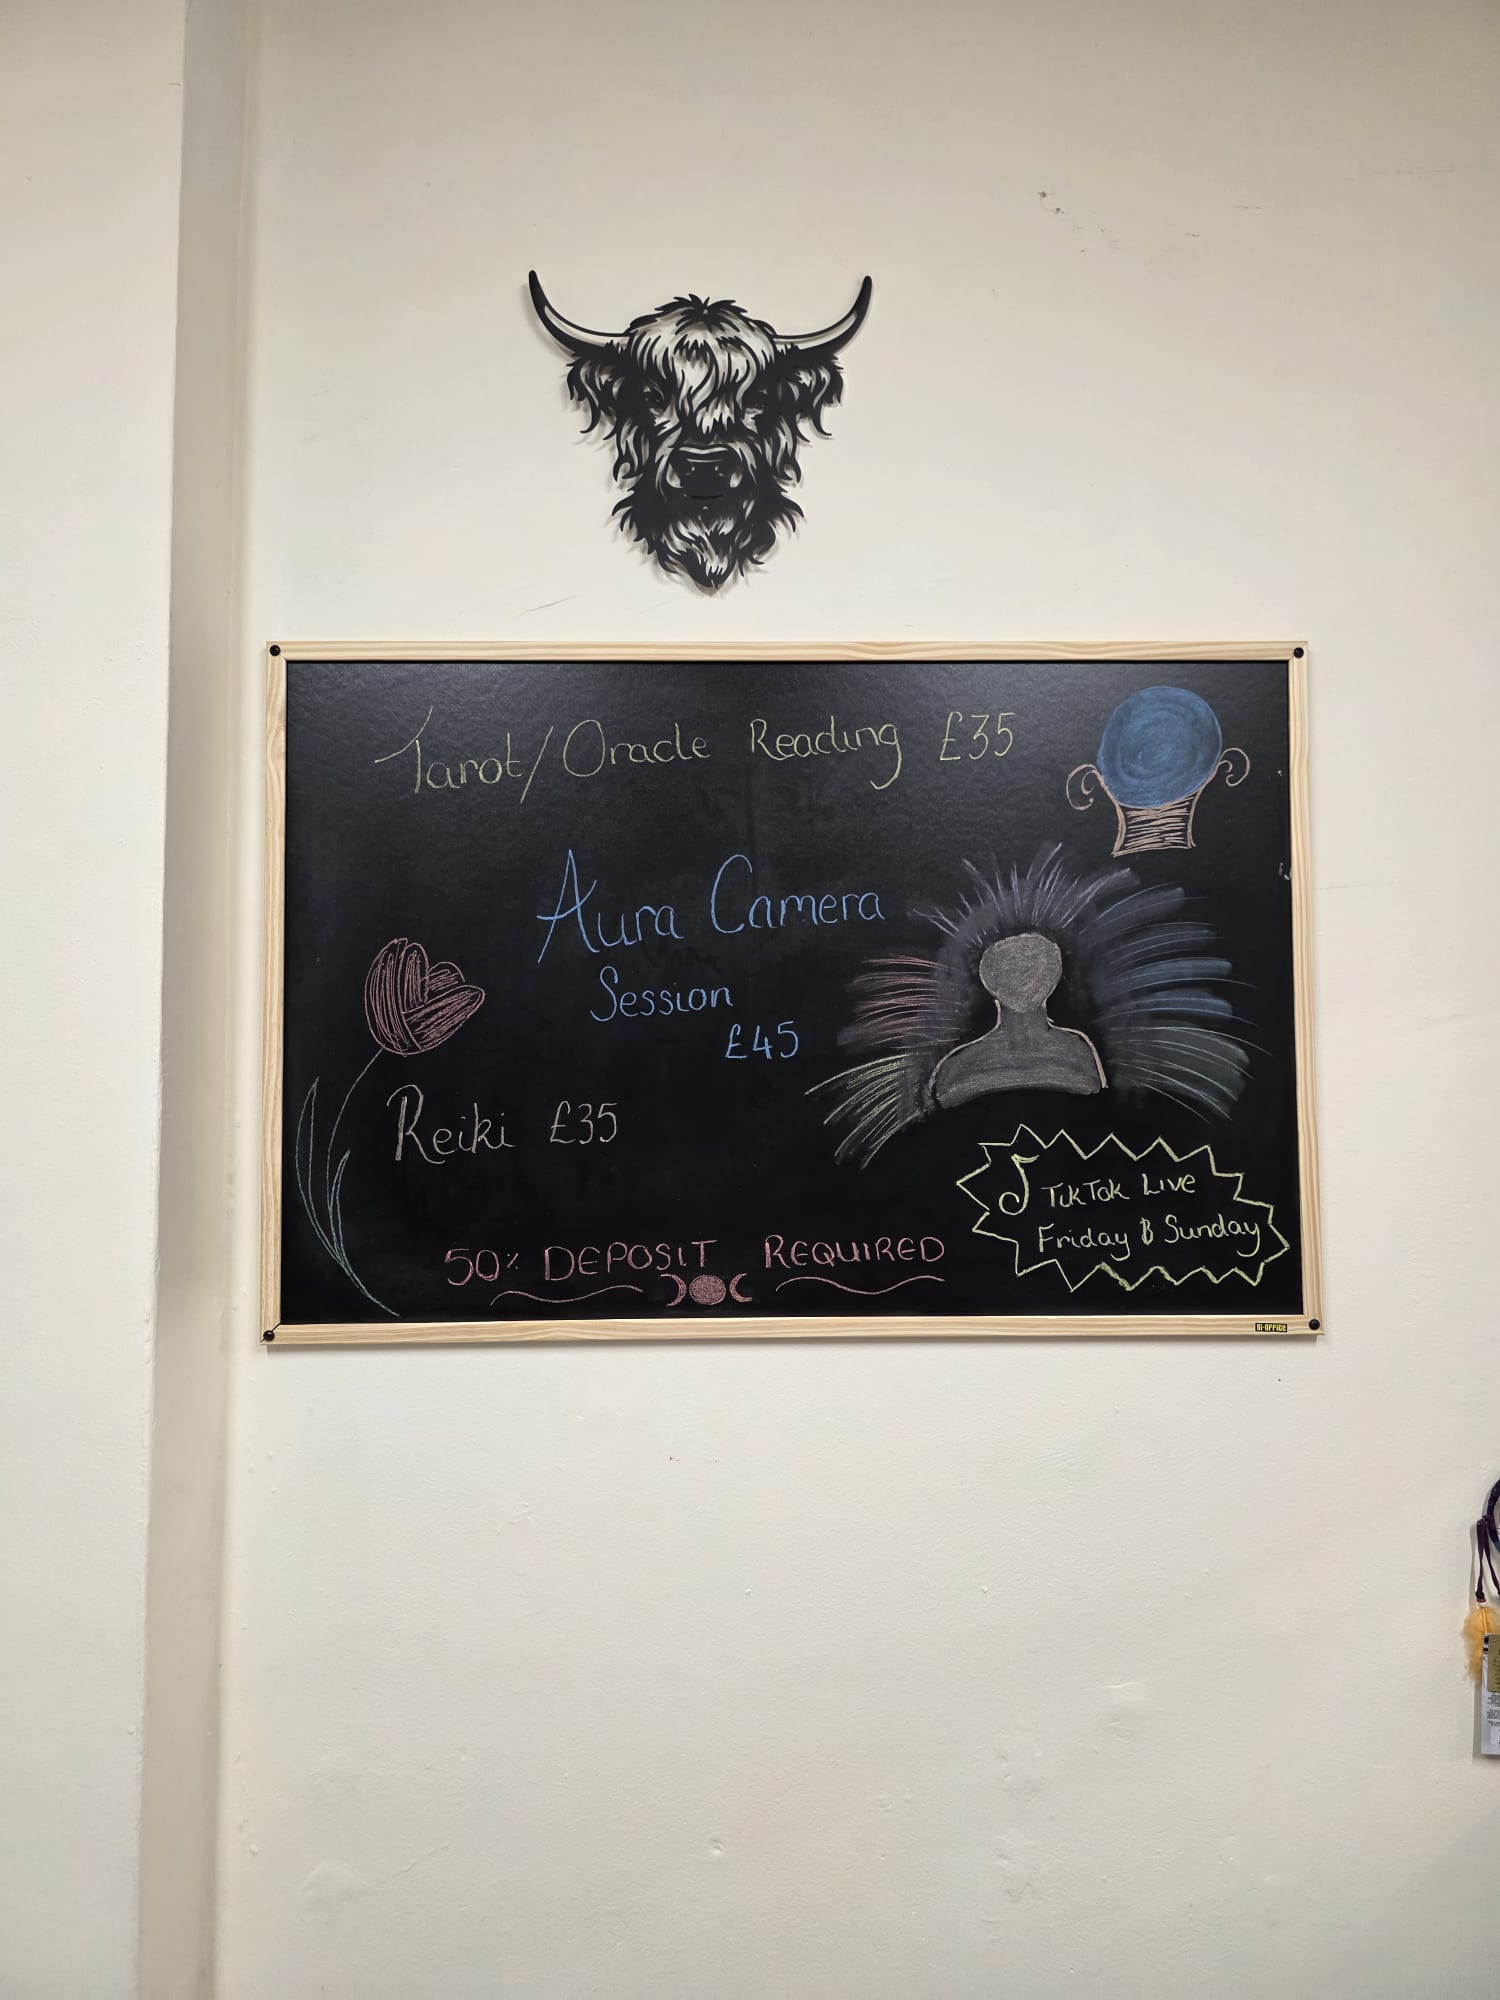 Tarot/Oracle Reading £35
Aura Camera
Session
£45
Reiki £35
50% DEPOSIT REQUIRED
TikTok Live
Friday & Sunday
Bi-OFFICE